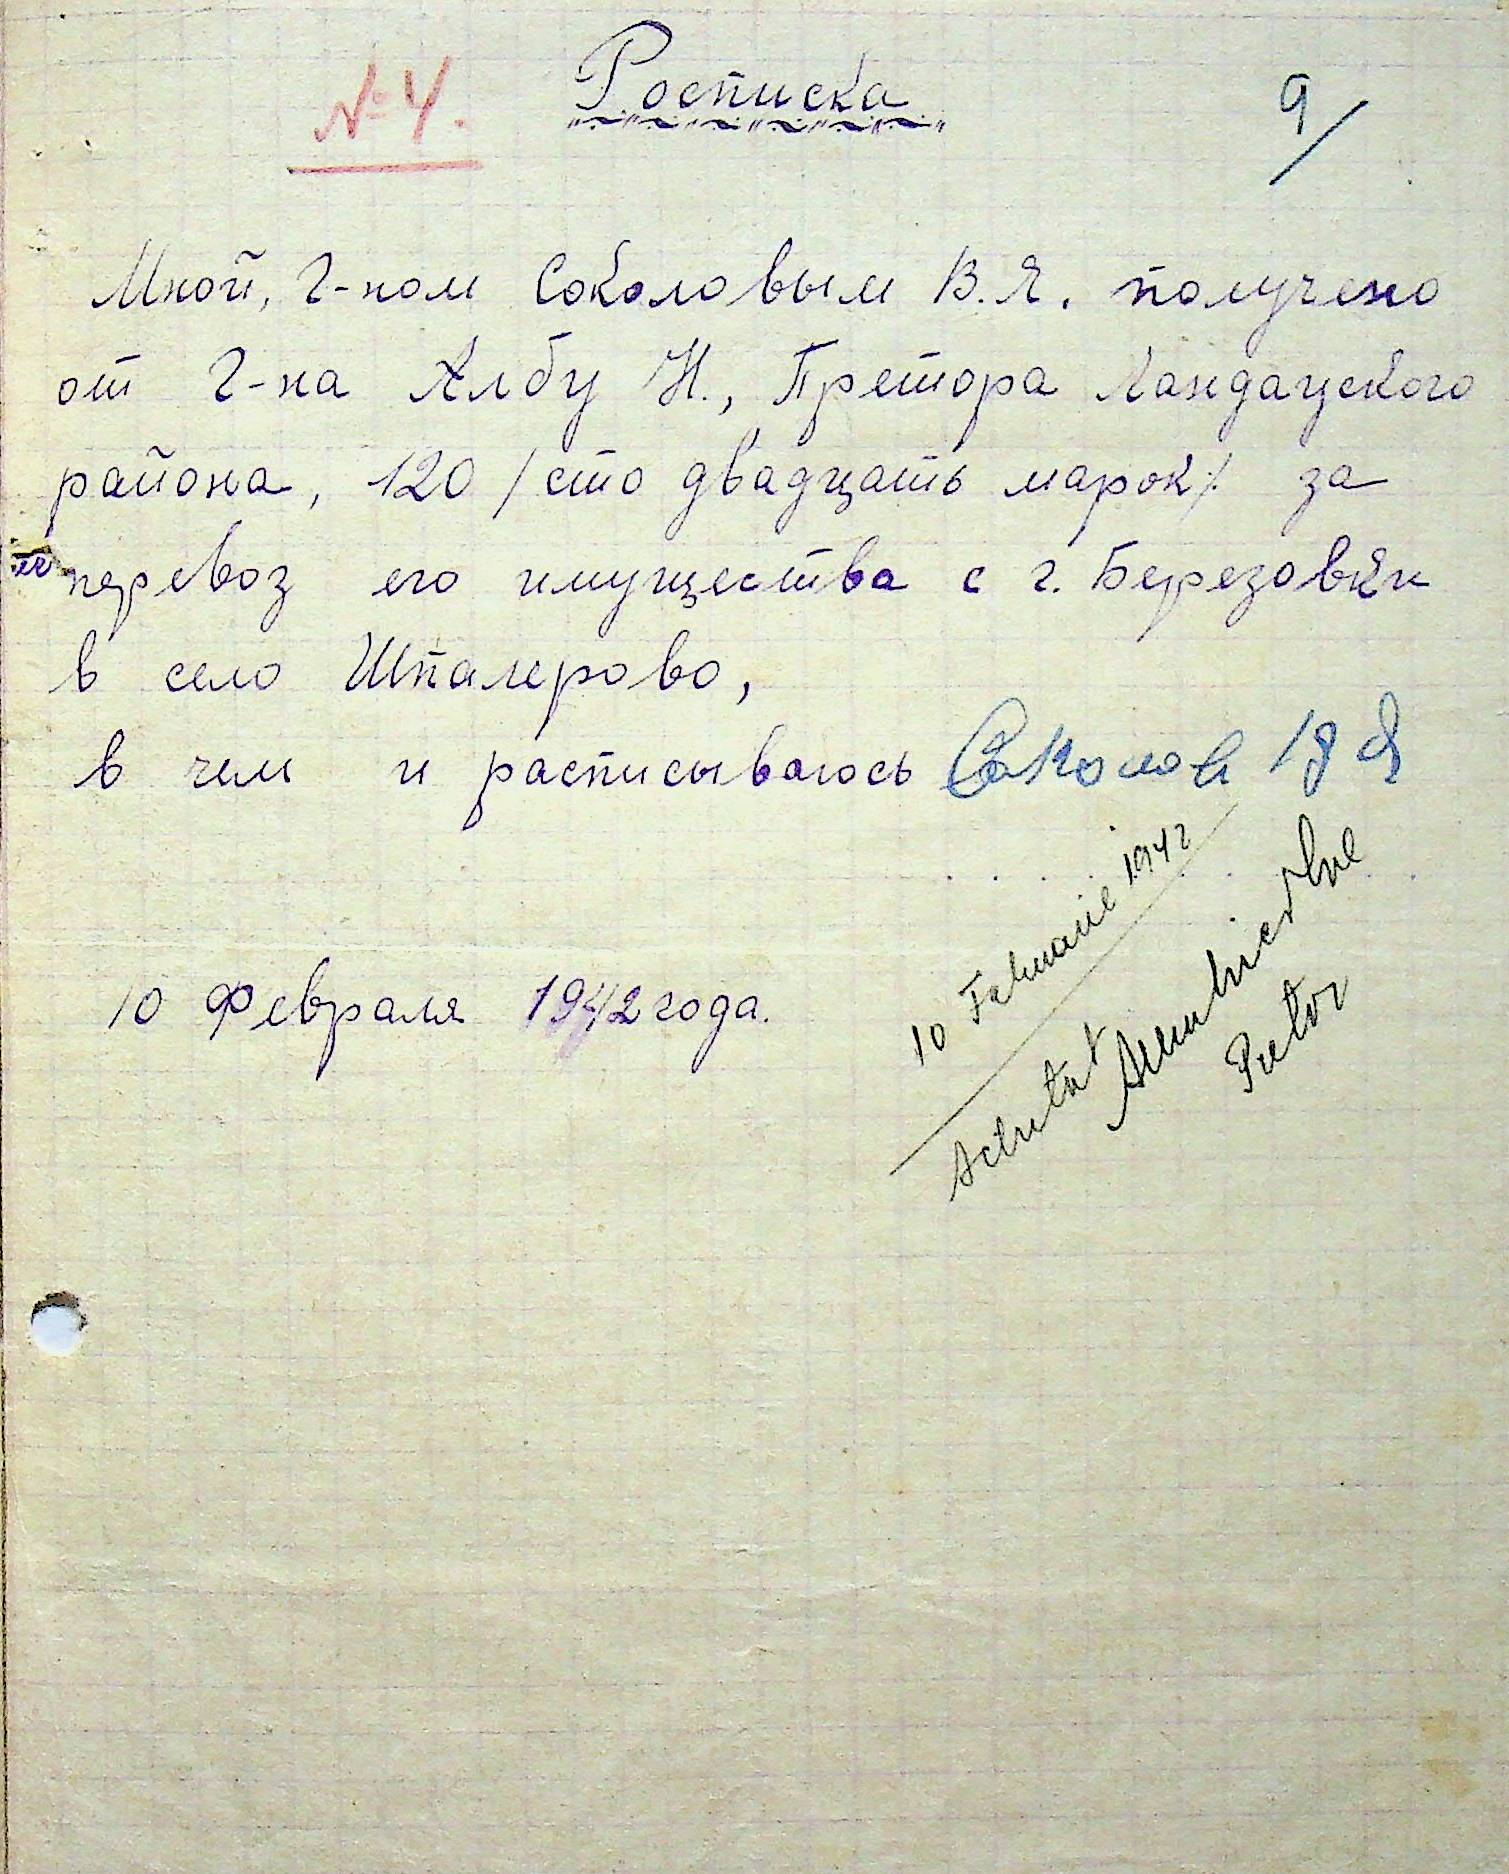 № 4.
Росписка
9/
Мной, г-ном Соколовым В. Я. получено
от г-на Албу Н., Претора Ландауского
района, 120 /сто двадцать марок/ за
перевоз его имущества с г. Березовки
в село Шпалерово,
в чем и расписываюсь Соколов
10 Февраля 1942 года.
10 Februarie 1942
Achitat
Pretor